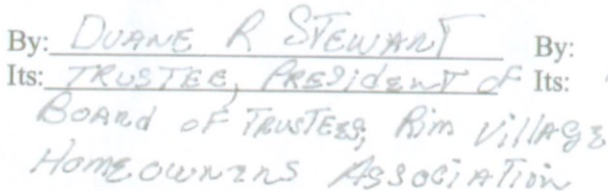 By: DUANE R STEWART By:
Its: TRUSTEE, PRESIDENT OF Its:
BOARD OF TRUSTEES, Rim VillAGE
HOMEOWNERS ASSOCIATION